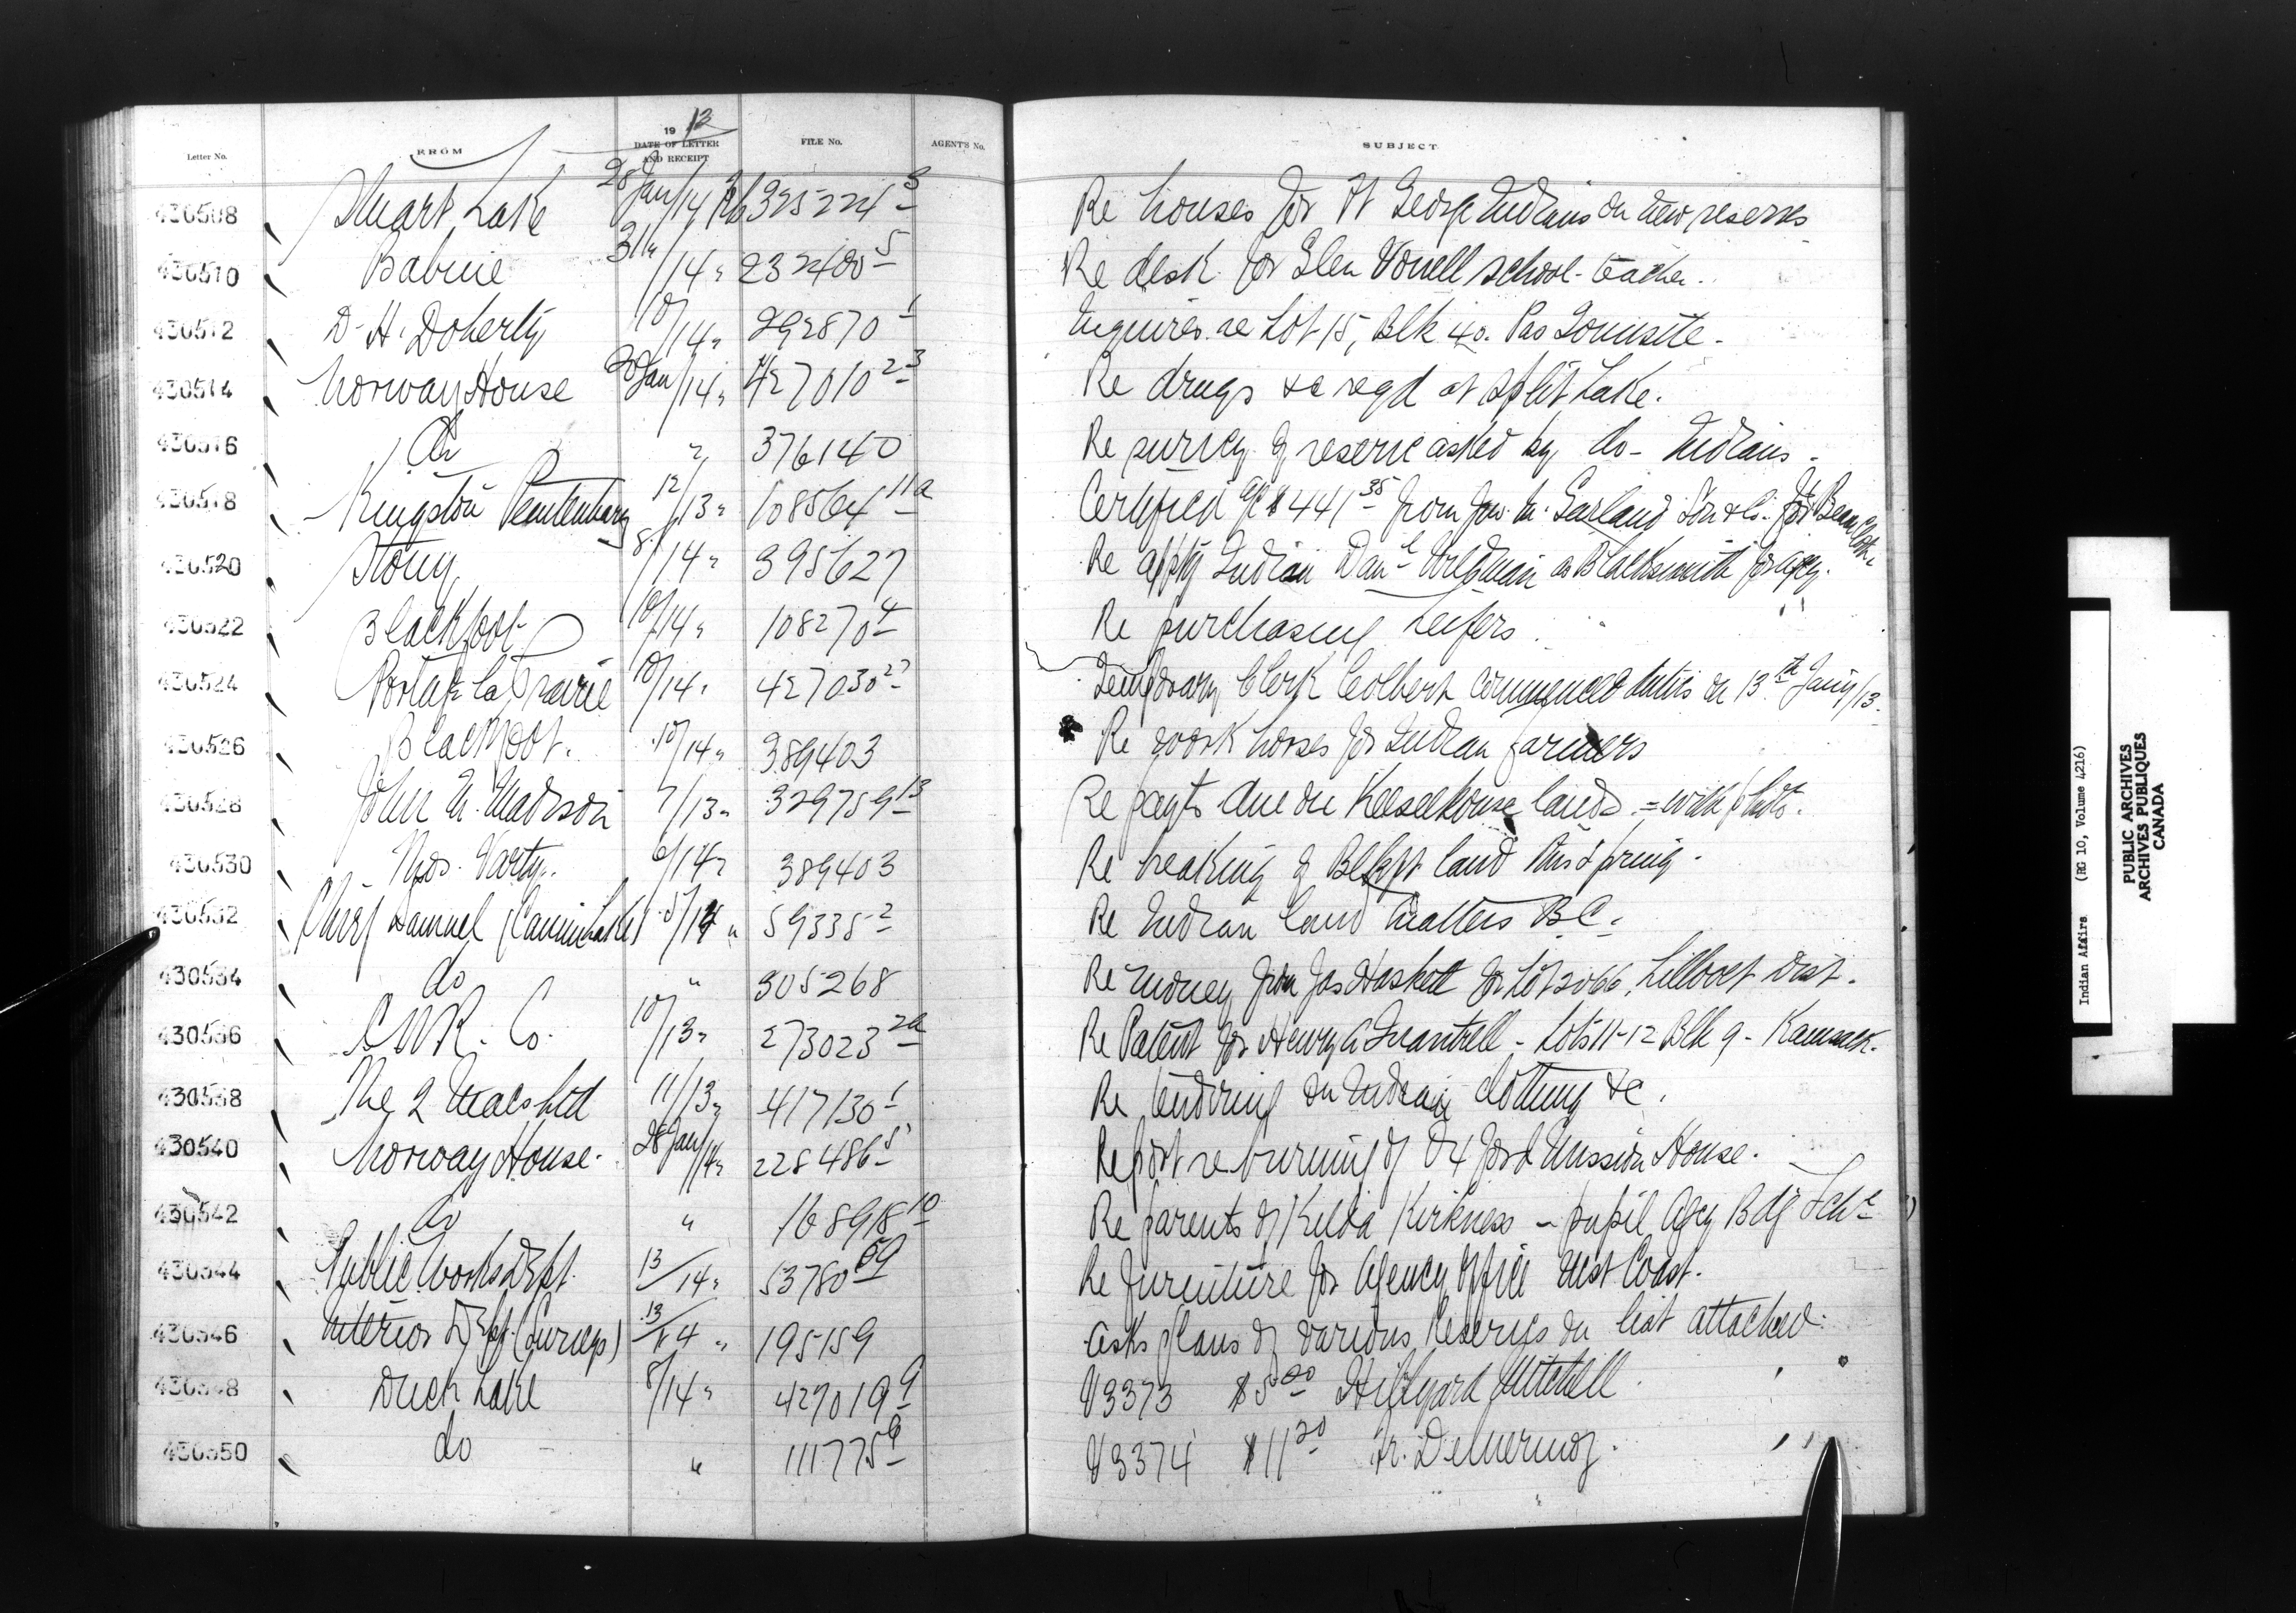 19 13
Letter No. FROM DATE OF LETTER AND RECEIPT FILE No. AGENT'S No. SUBJECT
430508 Stuart Lake 28 Jan/14 Feb 325224 3 Re houses for Ft George Indians on new reserves
430510 Babine 31 /14 " 232400 5 Re desk for Glen Vowell school-teacher.
430512 D. H. Doherty 10/14 " 292870 1 Inquires re Lot 15, Blk 40. Pas Townsite -
430514 Norway House 20 Jan/14 " 427010 2-3 Re drugs &c reqd at Split Lake.
430516 do " 376140 Re survey of reserve asked by do - Indians -
430518 Kingston Penitentiary 12/13 " 108564 11a Certified a/c $441 35 from Jno. M. Garland Son & Co. for
430520 Stony 8/14 " 395627 Re appltn Indian Danl Wildman as Blacksmith for agcy.
430522 Blackfoot 10/14 " 108270 4 Re purchasing heifers.
430524 Portage la Prairie 10/14 " 427030 27 Temporary Clerk Colbert commenced duties on 13th Jany/13.
430526 Blackfoot. 10/14 " 389403 Re work horses for Indian farmers
430528 John N. Madison 7/13 " 329759 13 Re paymts due on Keeseekouse lands = with
430530 Thos. Varty. 6/14 " 389403 Re breaking of Blkft land this spring.
430532 Chief Samuel (Canim Lake) 5/14 " 59335 2 Re Indian land matters B.C.
430534 do " 305268 Re money from Jas Haskett for Lot 2066, Lillooet Dist.
430536 C N R. Co. 10/13 " 273023 2a Re Patent for Henry A Quantrell - Lots 11-12 Blk 9 - Kamsack.
430538 The 2 Macs Ltd 11/13 " 417130 1 Re tendering on Indian clothing &c.
430540 Norway House. 28 Jan/14 " 228486 5 Report re burning of Oxford Mission House.
430542 do " 168918 10 Re parents of Kilda Kirkness - pupil Agcy Bdg Schl
430544 Public Works Dept. 13/14 " 53780 59 Re furniture for Agency Office West Coast.
430546 Interior Dept. (Surveys) 13/14 " 195159 Asks plans of various Reserves on list attached.
430548 Duck Lake 8/14 " 427019 9 V3373 $5 00 Hillyard Mitchell
430550 do " 111775 9 V3374 $11 20 Fr. Delmermoz.
Indian Affairs (RG 10, Volume 4216)
PUBLIC ARCHIVES
ARCHIVES PUBLIQUES
CANADA